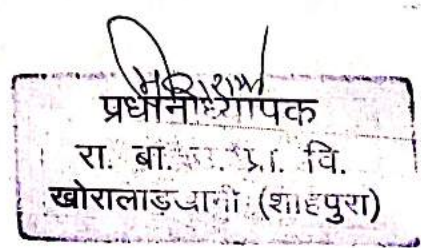 प्रधानाध्यापक
रा. बा. प्रा. वि.
खोरालाडखानी (शाहपुरा)